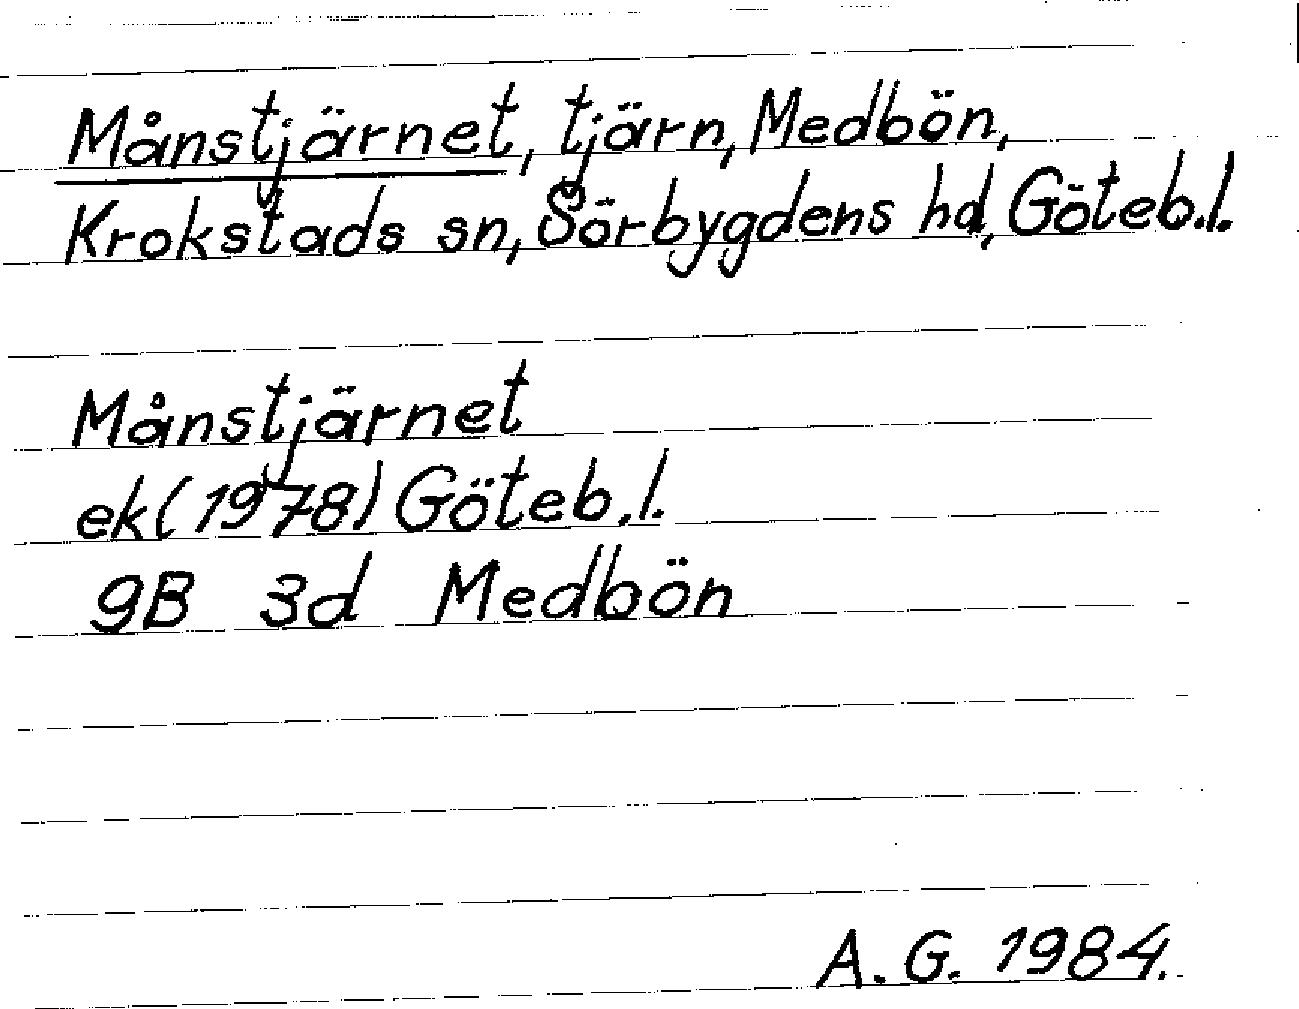 Månstjärnet, tjärn, Medbön,
Krokstads sn, Sörbygdens hd, Göteb.l.
Månstjärnet
ek (1978) Göteb.l.
9B 3d Medbön
A.G. 1984.